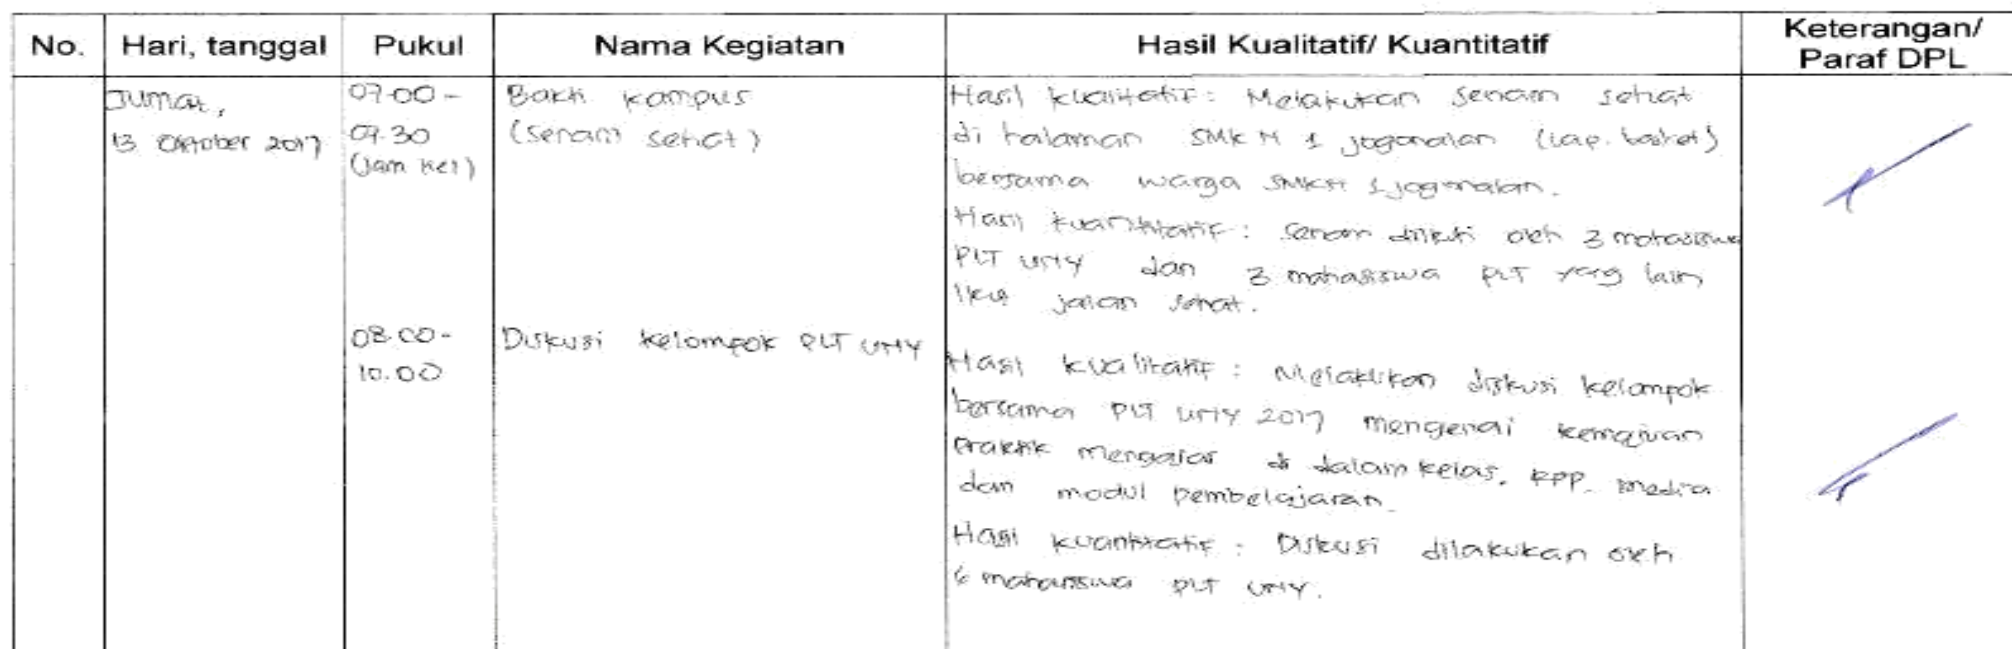 No. Hari, tanggal Pukul Nama Kegiatan Hasil Kualitatif/ Kuantitatif Keterangan/
Paraf DPL
Jumat,
13 Oktober 2017
07.00 -
07.30
(Jam ke 1)
Bakti kampus
(senam sehat)
Hasil kualitatif : Melakukan senam sehat
di halaman SMK N 1 jogonalan (lap. basket)
bersama warga SMKN 1 jogonalan.
Hasil kuantitatif : senam diikuti oleh 3 mahasiswa
PLT UNY dan 3 mahasiswa PLT yang lain
ikut jalan sehat.
08.00 -
10.00
Diskusi kelompok PLT UNY
Hasil kualitatif : Melakukan diskusi kelompok
bersama PLT UNY 2017 mengenai kemajuan
Praktik mengajar di dalam kelas, RPP, media
dan modul pembelajaran.
Hasil kuantitatif : Diskusi dilakukan oleh
6 mahasiswa PLT UNY.